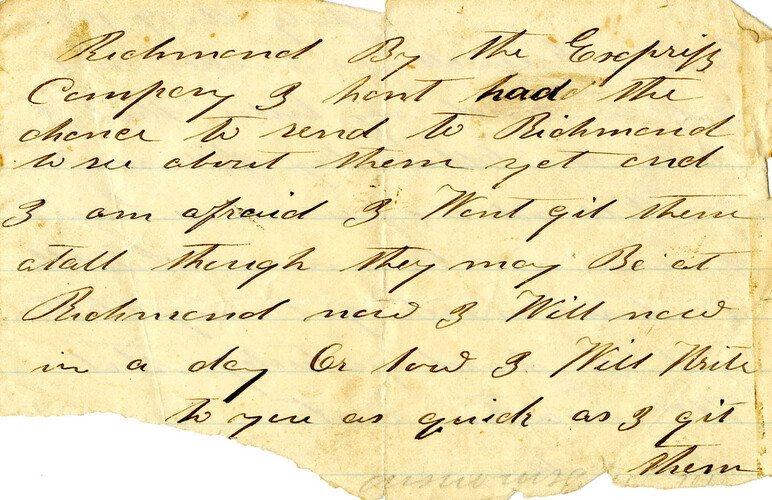 Richmond By the Expriss
Compery I hont had the
chance to send to Richmond
to see about them yet and
I am afraid I Wont git them
atall though they may Be at
Richmond now I Will now
in a day Or tow I Will Write
to you as quick as I git
them